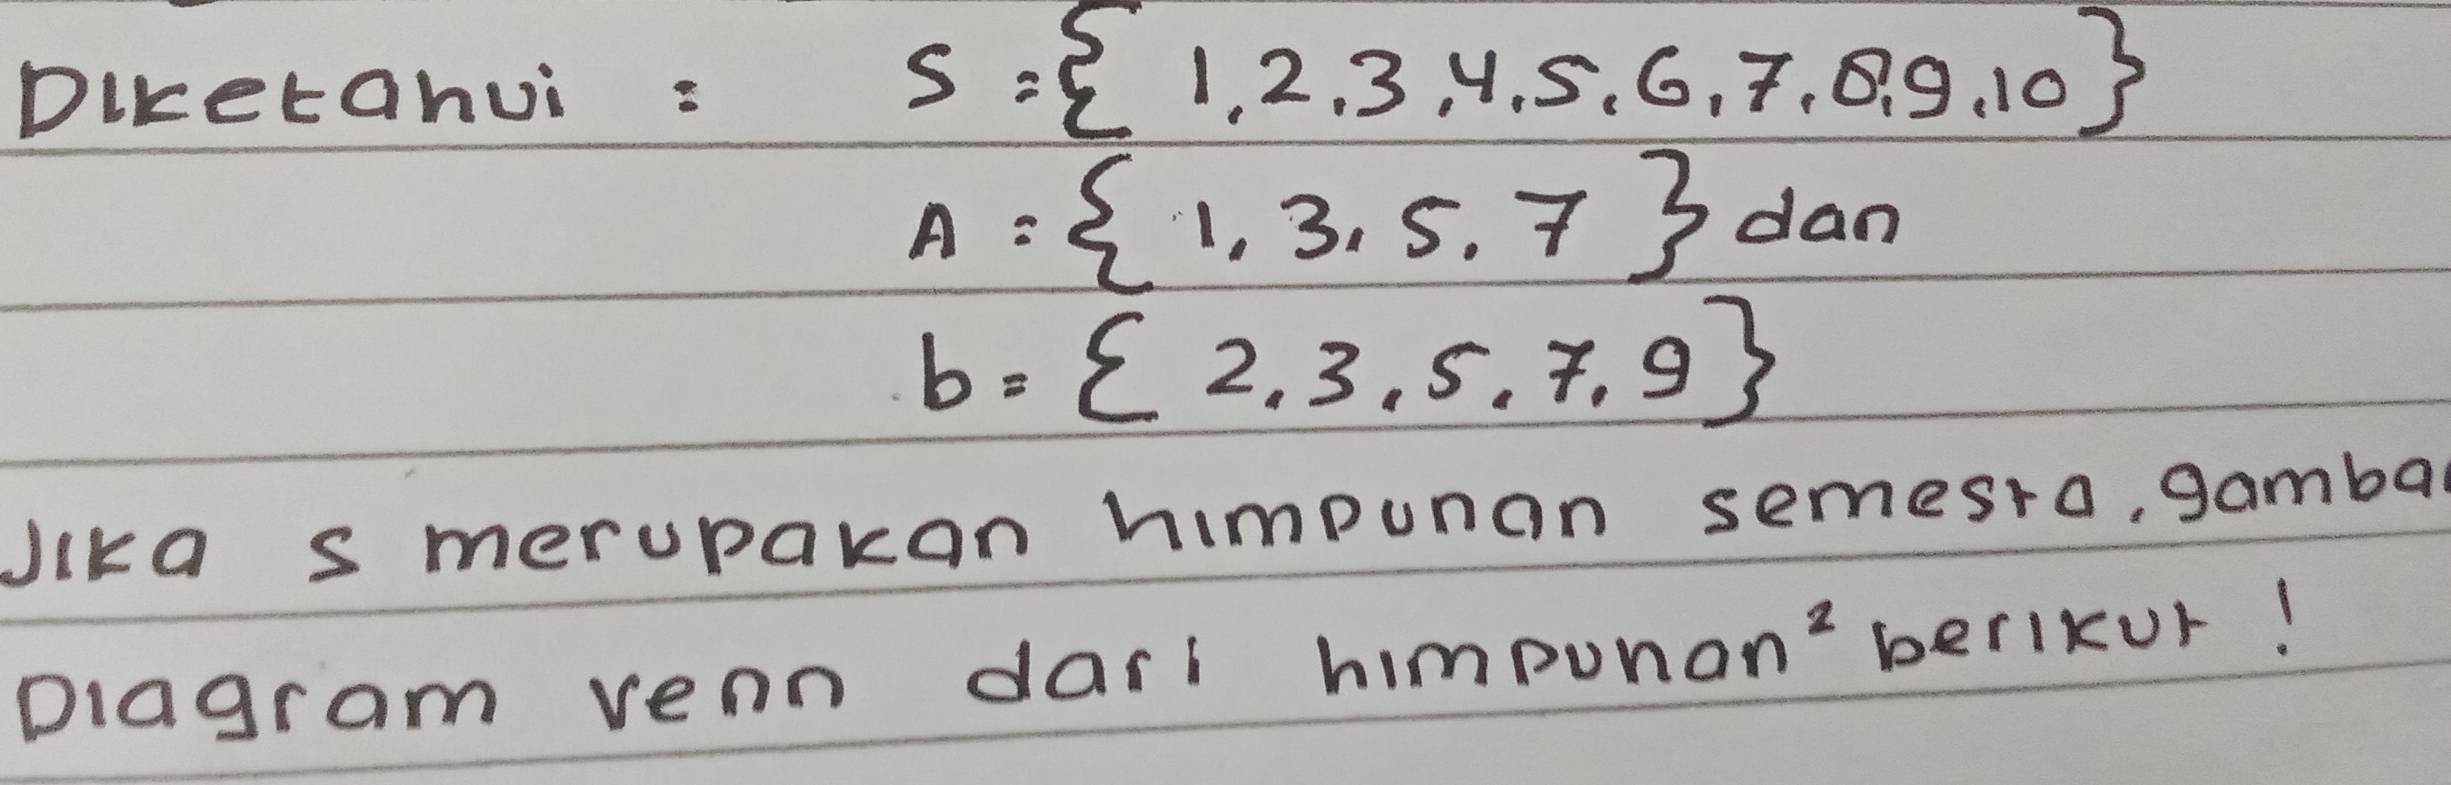 Diketahui : S = { 1, 2, 3, 4, 5, 6, 7, 8, 9, 10 }
A = { 1, 3, 5, 7 } dan
b = { 2, 3, 5, 7, 9 }
Jika s merupakan himpunan semesta, gambar
Diagram venn dari himpunan² berikut !